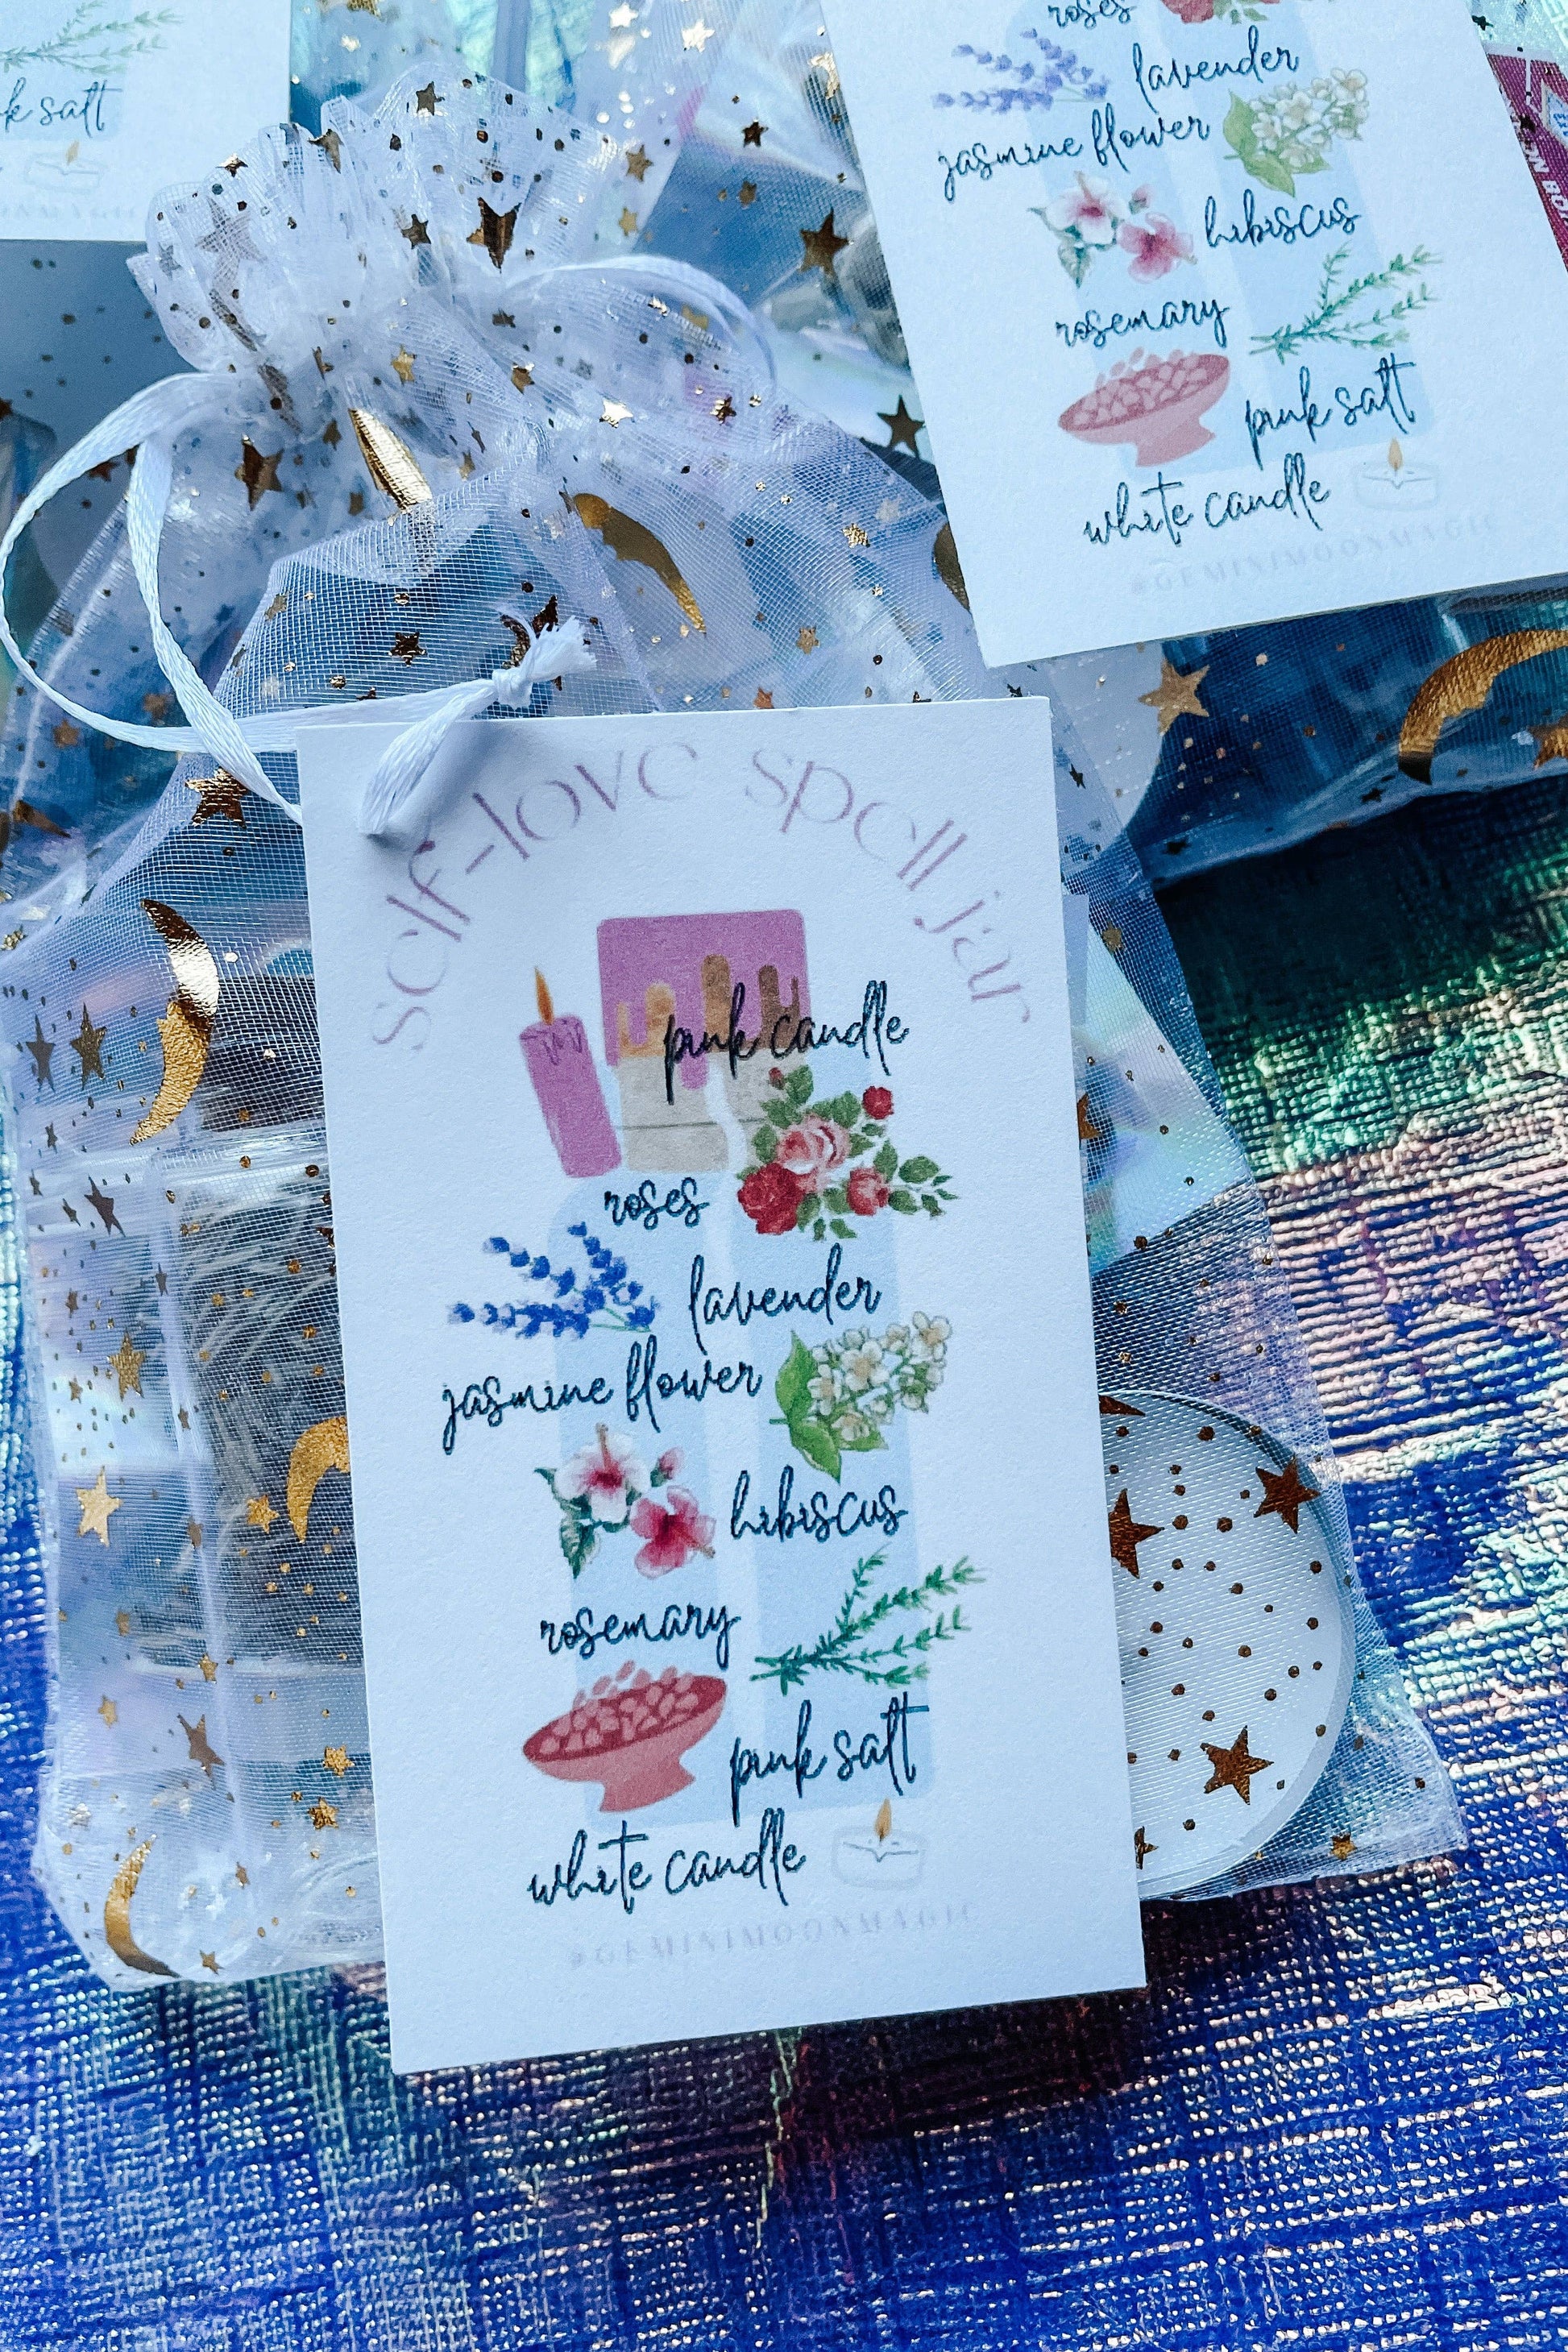 k salt
roses
lavender
jasmine flower
hibiscus
rosemary
pink salt
white candle
#GEMINIMOONMAGIC
self-love spell jar
pink candle
roses
lavender
jasmine flower
hibiscus
rosemary
pink salt
white candle
#GEMINIMOONMAGIC